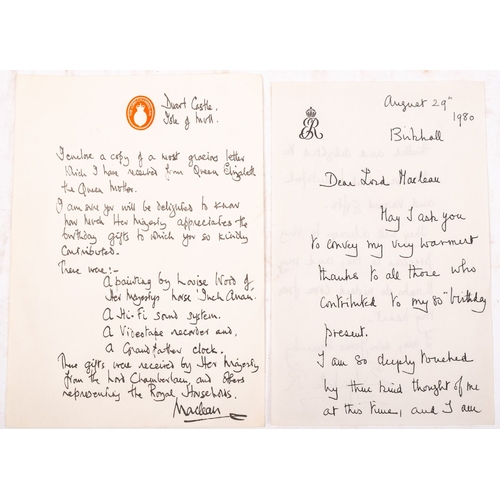 Duart Castle,
Isle of Mull.
I enclose a copy of a most gracious letter
which I have received from Queen Elizabeth
the Queen Mother.
I am sure you will be delighted to know
how much Her Majesty appreciates the
birthday gifts to which you so kindly
contributed.
These were:-
A painting by Louise Wood of
Her Majesty's horse 'Inch Arran'.
A Hi-Fi sound system.
A Videotape recorder and,
a Grandfather clock.
These gifts were received by Her Majesty
from the Lord Chamberlain, and others
representing the Royal Households.
Maclean
ER
August 29th
1980
Birkhall
Dear Lord Maclean
May I ask you
to convey my very warmest
thanks to all those who
contributed to my 80th birthday
present.
I am so deeply touched
by this kind thought of me
at this time, and I am